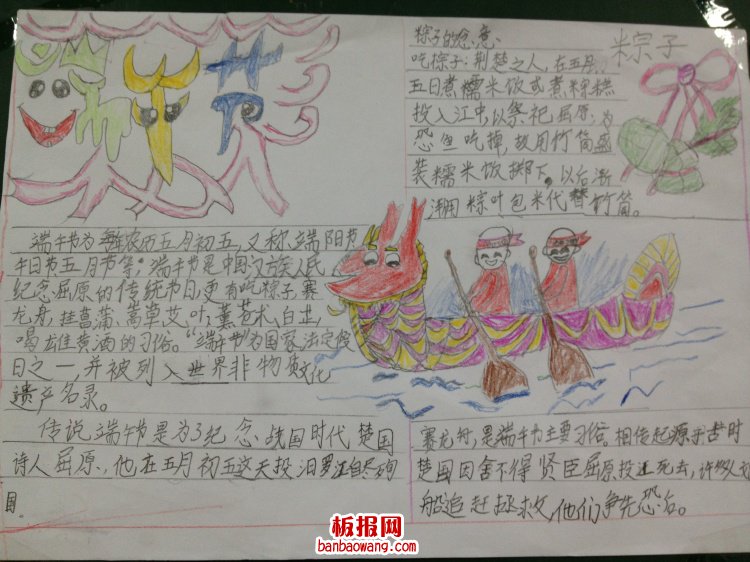 端午节
粽子的意、意:
吃粽子:荆楚之人,在五月
五日煮糯米饭或煮粽糕
投入江中,以祭祀屈原,为
恐鱼吃掉,故用竹筒盛
装糯米饭掷下,以后渐
渐用粽叶包米代替竹筒。
粽子
端午节为每年农历五月初五,又称端阳节
午日节五月节等。端午节是中国汉族人民
纪念屈原的传统节日,更有吃粽子,赛
龙舟,挂菖蒲、蒿草艾叶,薰苍术、白芷,
喝雄黄酒的习俗。"端午节"为国家法定假
日之一并被列入世界非物质文化
遗产名录。
传说端午节是为了纪念战国时代楚国
诗人屈原,他在五月初五这天投汨罗江自尽殉
国。
赛龙舟,是端午节主要习俗。相传起源于古时
楚国因舍不得贤臣屈原投江死去,许多人划
船追赶拯救,他们争先恐后。
板报网
banbaowang.com